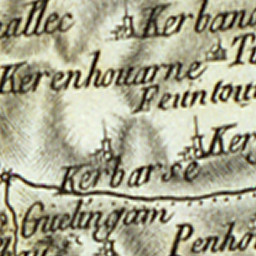 allec
Kerband
Kerenhouarne
Feuntou
Ker
Kerbarse
Guelingam
Penho